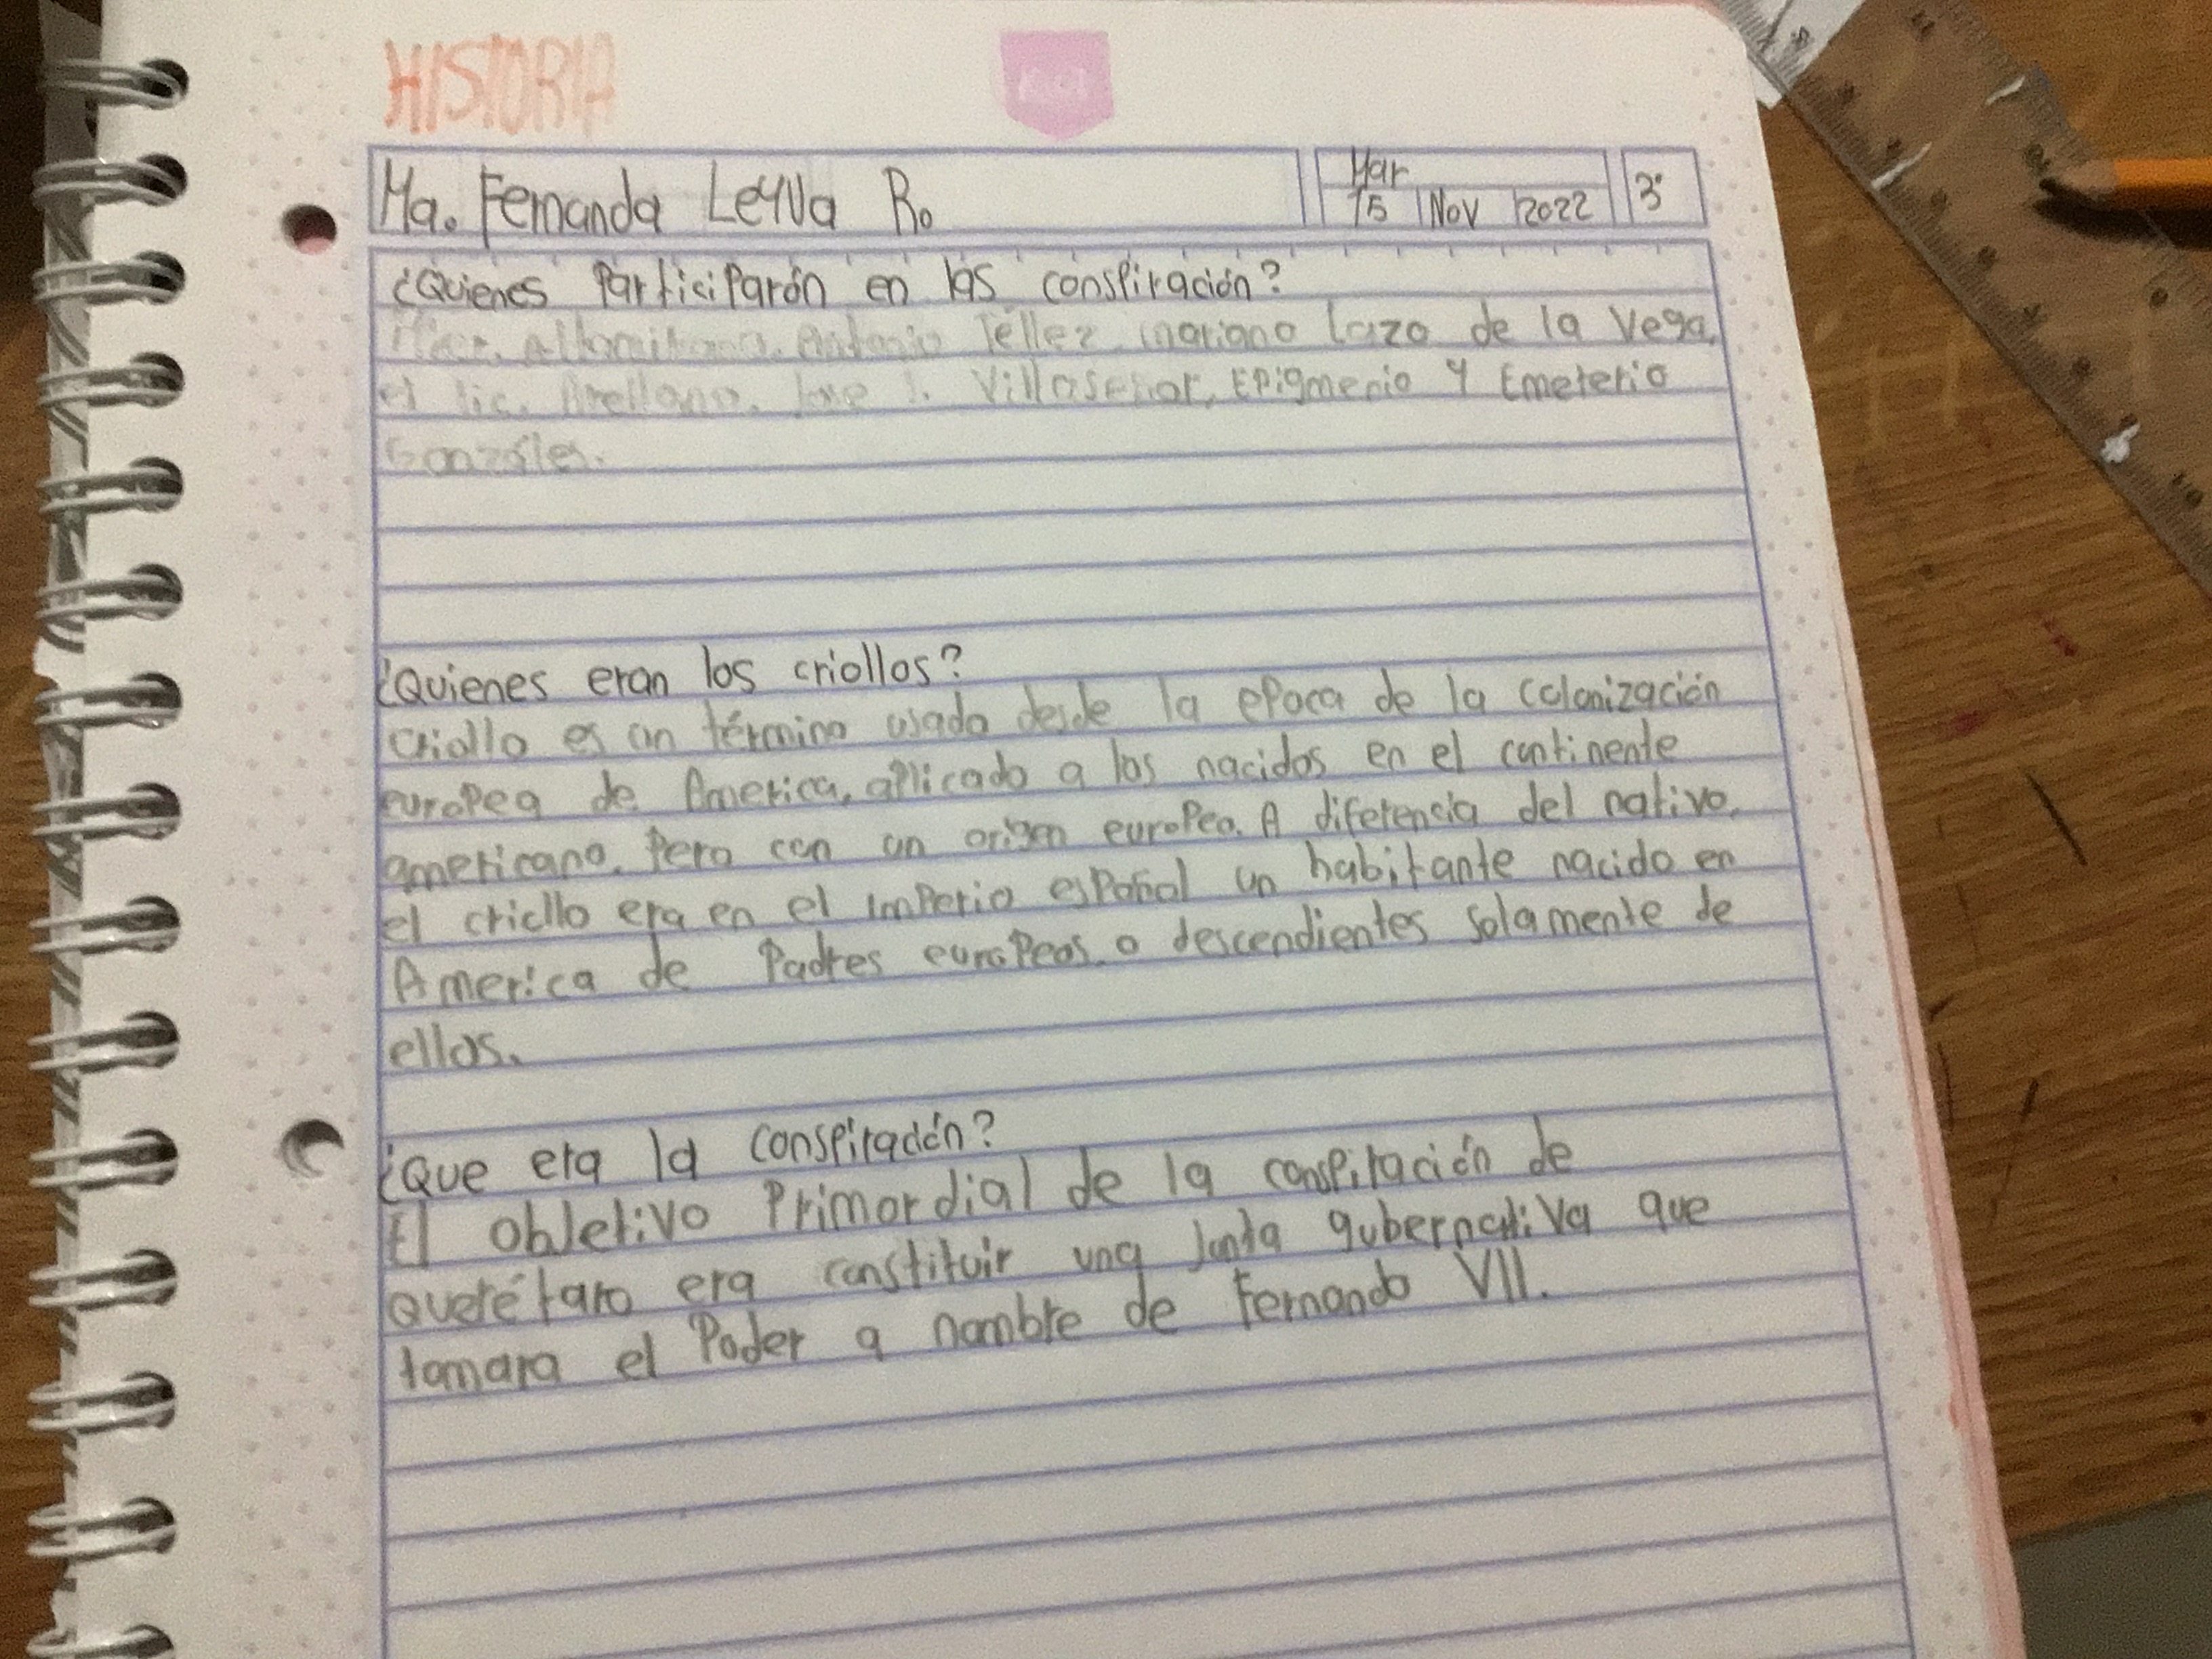 HISTORIA
Ma. Fernanda Leyva R.
Mar
15 Nov 2022
3°
¿Quienes Participarón en las conspiración?
Altamirano, Antonio Téllez, mariano lazo de la Vega,
el lic. Arellano, José I. Villaseñor, Epigmenio y Emeterio
Gonzáles.
¿Quienes eran los criollos?
criollo es un término usado desde la epoca de la colonización
europea de America, aplicado a los nacidos en el continente
americano, Pero con un origen europeo. A diferencia del nativo,
el criollo era en el imperio español un habitante nacido en
America de Padres europeos, o descendientes solamente de
ellos.
¿Que era la conspiración?
El objetivo Primordial de la conspiración de
Querétaro era constituir una junta gubernativa que
tomara el Poder a nombre de Fernando VII.